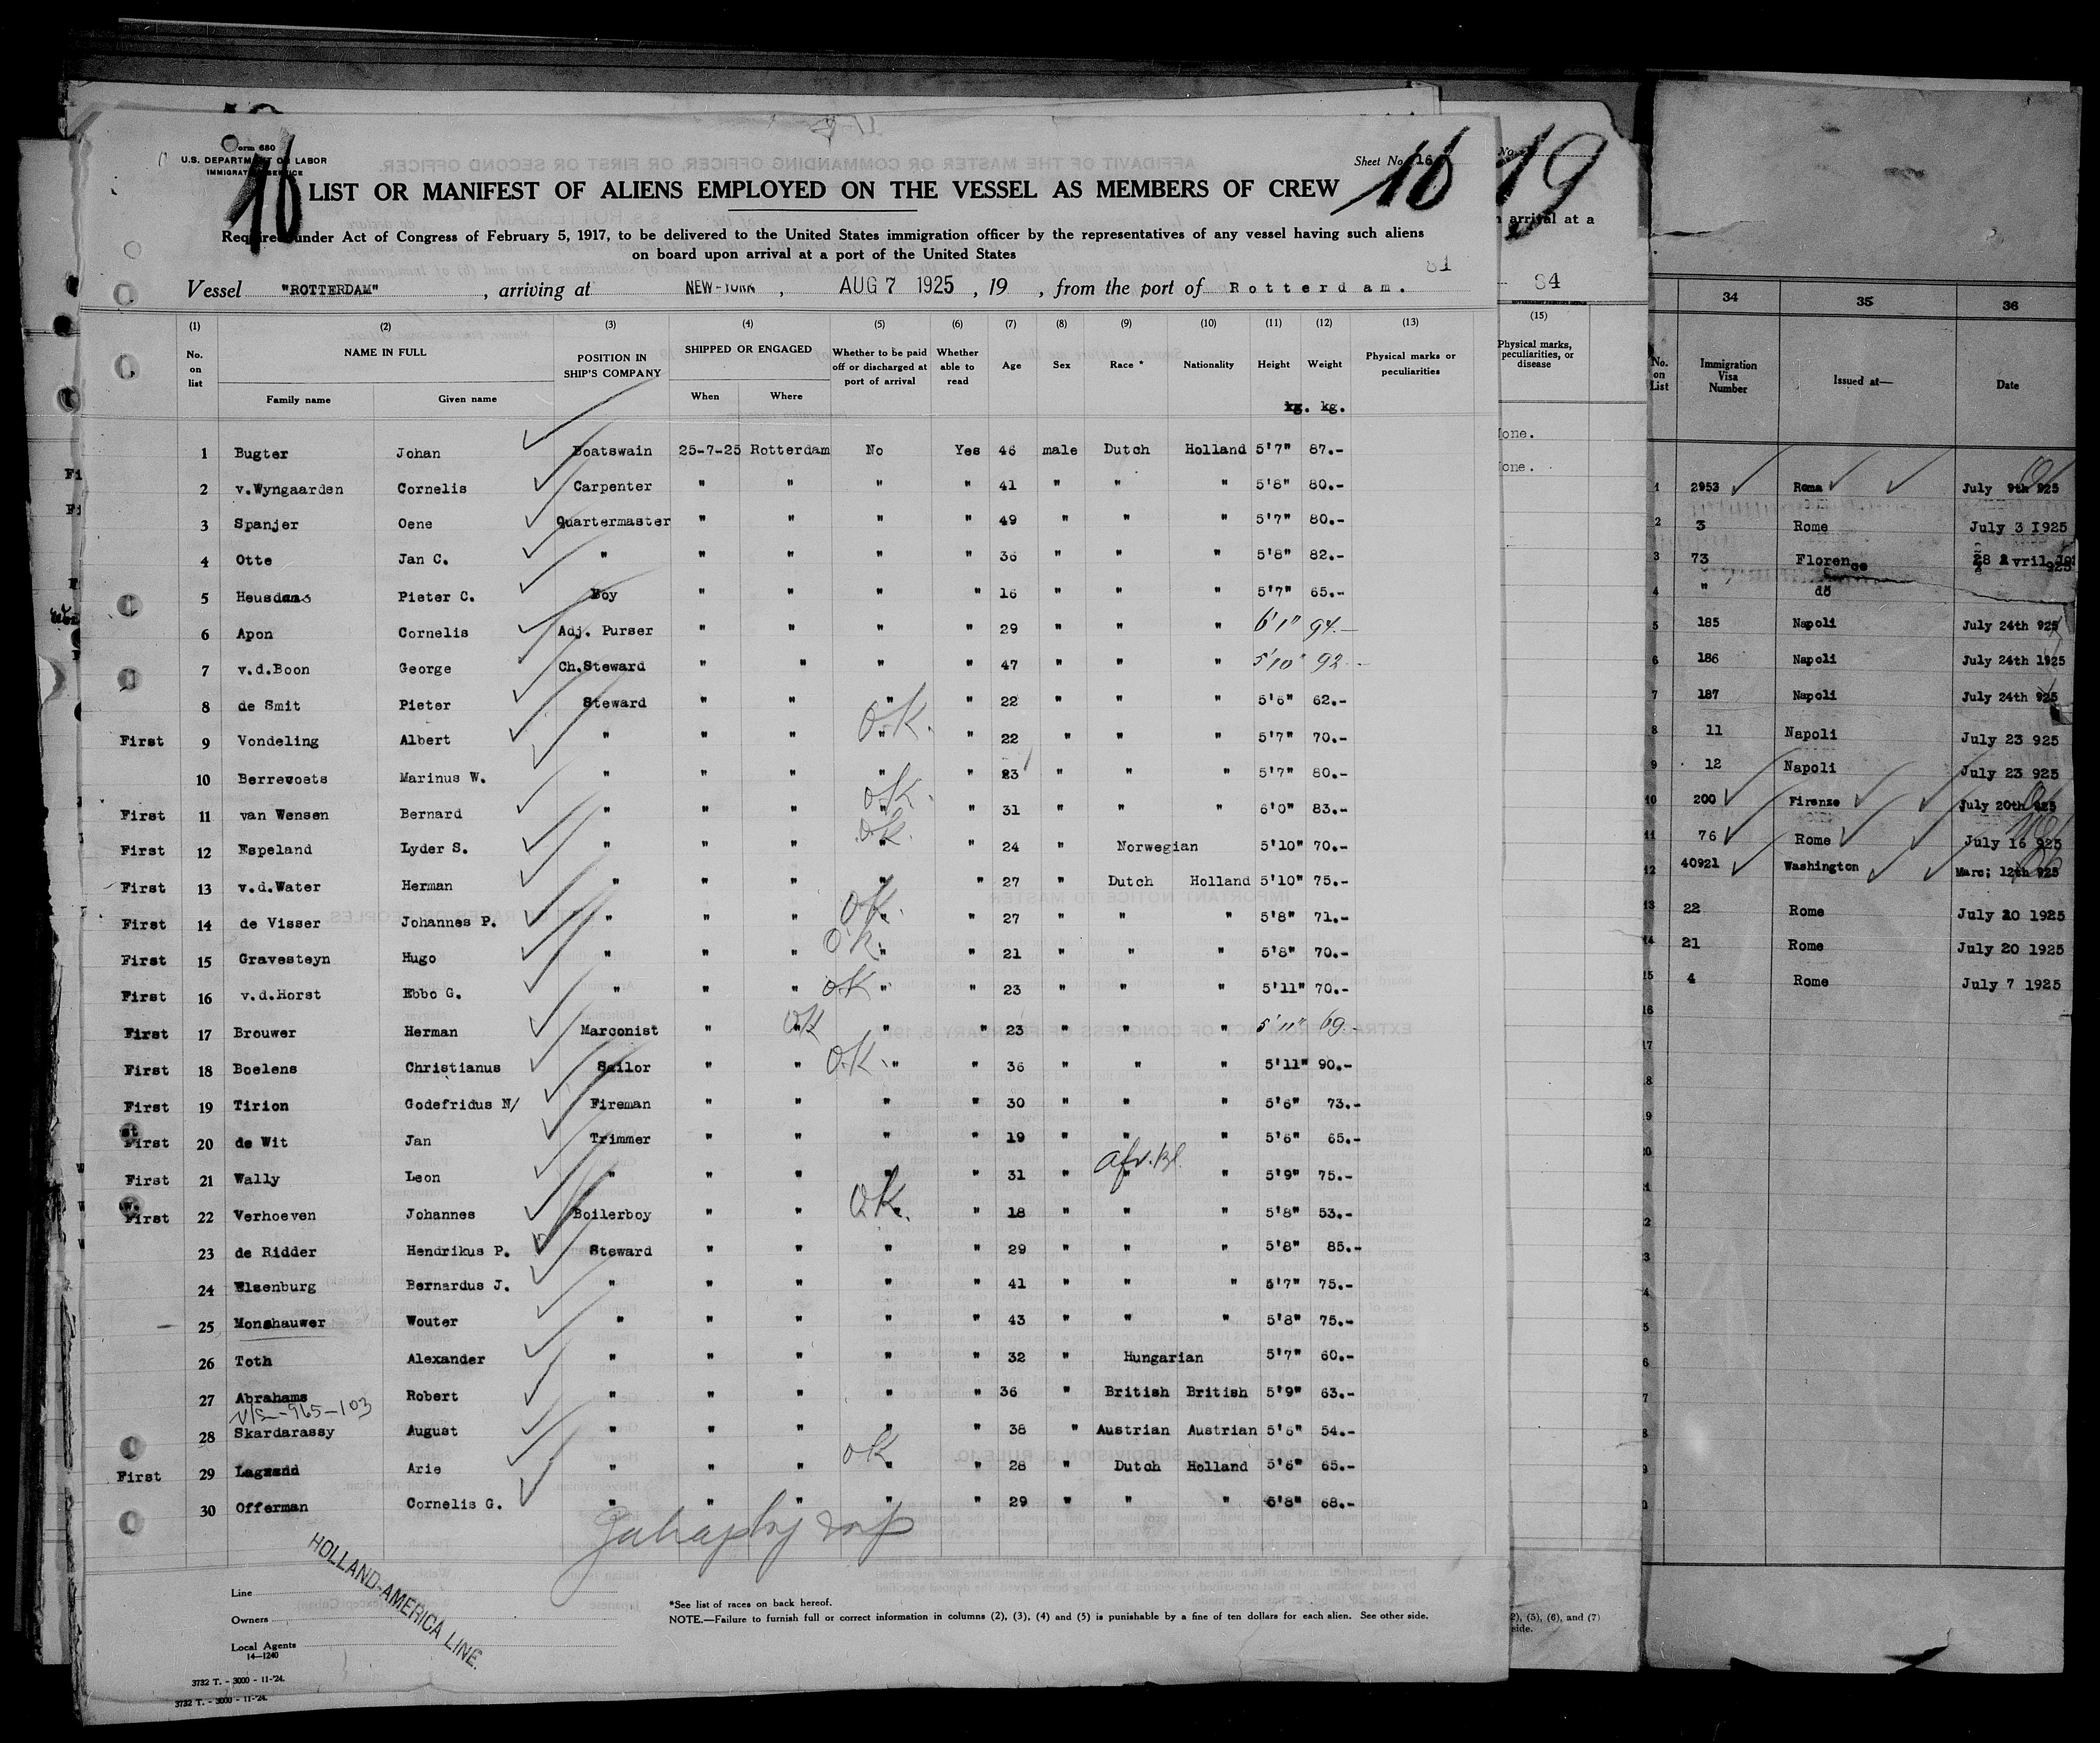 Form 680
U.S. DEPARTMENT OF LABOR
IMMIGRATION SERVICE
Sheet No. 16
16
16
LIST OR MANIFEST OF ALIENS EMPLOYED ON THE VESSEL AS MEMBERS OF CREW
Required under Act of Congress of February 5, 1917, to be delivered to the United States immigration officer by the representatives of any vessel having such aliens
on board upon arrival at a port of the United States
81
Vessel "ROTTERDAM", arriving at NEW-YORK, AUG 7 1925, 19 , from the port of Rotterdam.
(1) (2) (3) (4) (5) (6) (7) (8) (9) (10) (11) (12) (13)
No. on list NAME IN FULL Family name Given name POSITION IN SHIP'S COMPANY SHIPPED OR ENGAGED When Where Whether to be paid off or discharged at port of arrival Whether able to read Age Sex Race * Nationality Height Weight Physical marks or peculiarities
kg. kg.
1 Bugter Johan Boatswain 25-7-25 Rotterdam No Yes 46 male Dutch Holland 5'7" 87.-
2 v.Wyngaarden Cornelis Carpenter " " " " 41 " " " 5'8" 80.-
3 Spanjer Oene Quartermaster " " " " 49 " " " 5'7" 80.-
4 Otte Jan C. " " " " " 36 " " " 5'8" 82.-
5 Heusdens Pieter C. Boy " " " " 16 " " " 5'7" 65.-
6 Apon Cornelis Adj. Purser " " " " 29 " " " 6'1" 94.-
7 v.d.Boon George Ch.Steward " " " " 47 " " " 5'10" 92.-
8 de Smit Pieter Steward " " " " 22 " " " 5'6" 62.-
First 9 Vondeling Albert " " " " O.K. " 22 " " " 5'7" 70.-
10 Berrevoets Marinus W. " " " " " 23 " " " 5'7" 80.-
First 11 van Wensen Bernard " " " " O.K. " 31 " " " 6'0" 83.-
First 12 Espeland Lyder S. " " " " O.K. " 24 " Norwegian 5'10" 70.-
First 13 v.d.Water Herman " " " " " 27 " Dutch Holland 5'10" 75.-
First 14 de Visser Johannes P. " " " " O.K. " 27 " " " 5'8" 71.-
First 15 Gravesteyn Hugo " " " " O.K. " 21 " " " 5'8" 70.-
First 16 v.d.Horst Ebbo G. " " " O.K. " " 23 " " " 5'11" 70.-
First 17 Brouwer Herman Marconist " " OK " " 23 " " " 5'11" 69.-
First 18 Boelens Christianus Sailor " " O.K. " " 36 " " " 5'11" 90.-
First 19 Tirion Godefridus N/ Fireman " " " " 30 " " " 5'6" 73.-
First 20 de Wit Jan Trimmer " " " " 19 " " " 5'6" 65.-
First 21 Wally Leon " " " " " 31 " afr. bl. " " 5'9" 75.-
First 22 Verhoeven Johannes Boilerboy " " O.K. " " 18 " " " 5'8" 53.-
23 de Ridder Hendrikus P. Steward " " " " 29 " " " 5'8" 85.-
24 Elsenburg Bernardus J. " " " " " 41 " " " 5'7" 75.-
25 Monshauwer Wouter " " " " " 43 " " " 5'8" 75.-
26 Toth Alexander " " " " " 32 " Hungarian 5'7" 60.-
27 Abrahams Robert " " " " " 36 " British British 5'9" 63.-
-965-103
28 Skardarassy August " " " " " 38 " Austrian Austrian 5'6" 54.-
First 29 Arie " " " OK " " 28 " Dutch Holland 5'6" 65.-
30 Offerman Cornelis G. " " " " " 29 " " " 5'8" 68.-
HOLLAND-AMERICA LINE.
Line
Owners
Local Agents
14—1240
*See list of races on back hereof.
NOTE.—Failure to furnish full or correct information in columns (2), (3), (4) and (5) is punishable by a fine of ten dollars for each alien. See other side.
3732 T. - 3000 - 11-'24.
3732 T. - 3000 - 11-'24.
No.
19
arrival at a
84
(15)
Physical marks, peculiarities, or disease
one.
one.
2), (5), (6), and (7)
side.
34 35 36
No. on List Immigration Visa Number Issued at— Date
1 2953 Roma July 9th 925
2 3 Rome July 3 1925
3 73 Florence 28 Avril 925
4 " do
5 185 Napoli July 24th 925
6 186 Napoli July 24th 1925
7 187 Napoli July 24th 925
8 11 Napoli July 23 925
9 12 Napoli July 23 925
10 200 Firenze July 20th 925
11 76 Rome July 16 925
12 40921 Washington Marc; 12th 925
13 22 Rome July 20 1925
14 21 Rome July 20 1925
15 4 Rome July 7 1925
16
17